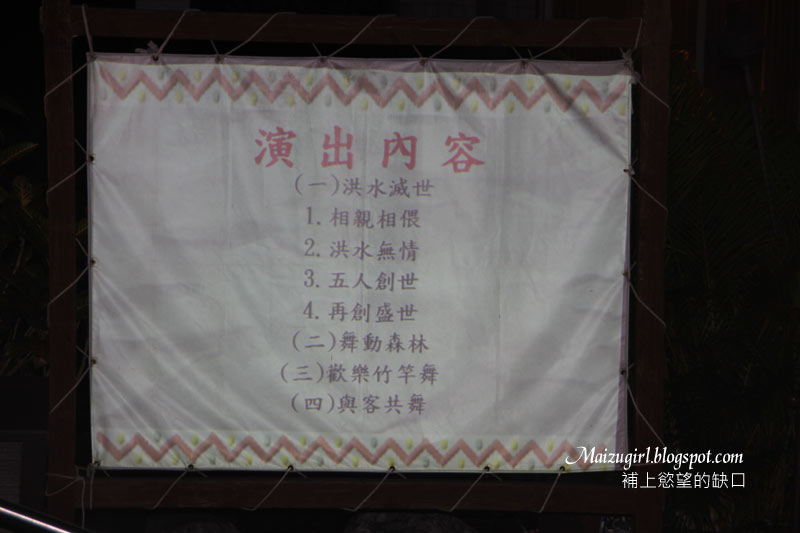 演出內容
(一)洪水滅世
1.相親相偎
2.洪水無情
3.五人創世
4.再創盛世
(二)舞動森林
(三)歡樂竹竿舞
(四)與客共舞
Maizugirl.blogspot.com
補上慾望的缺口